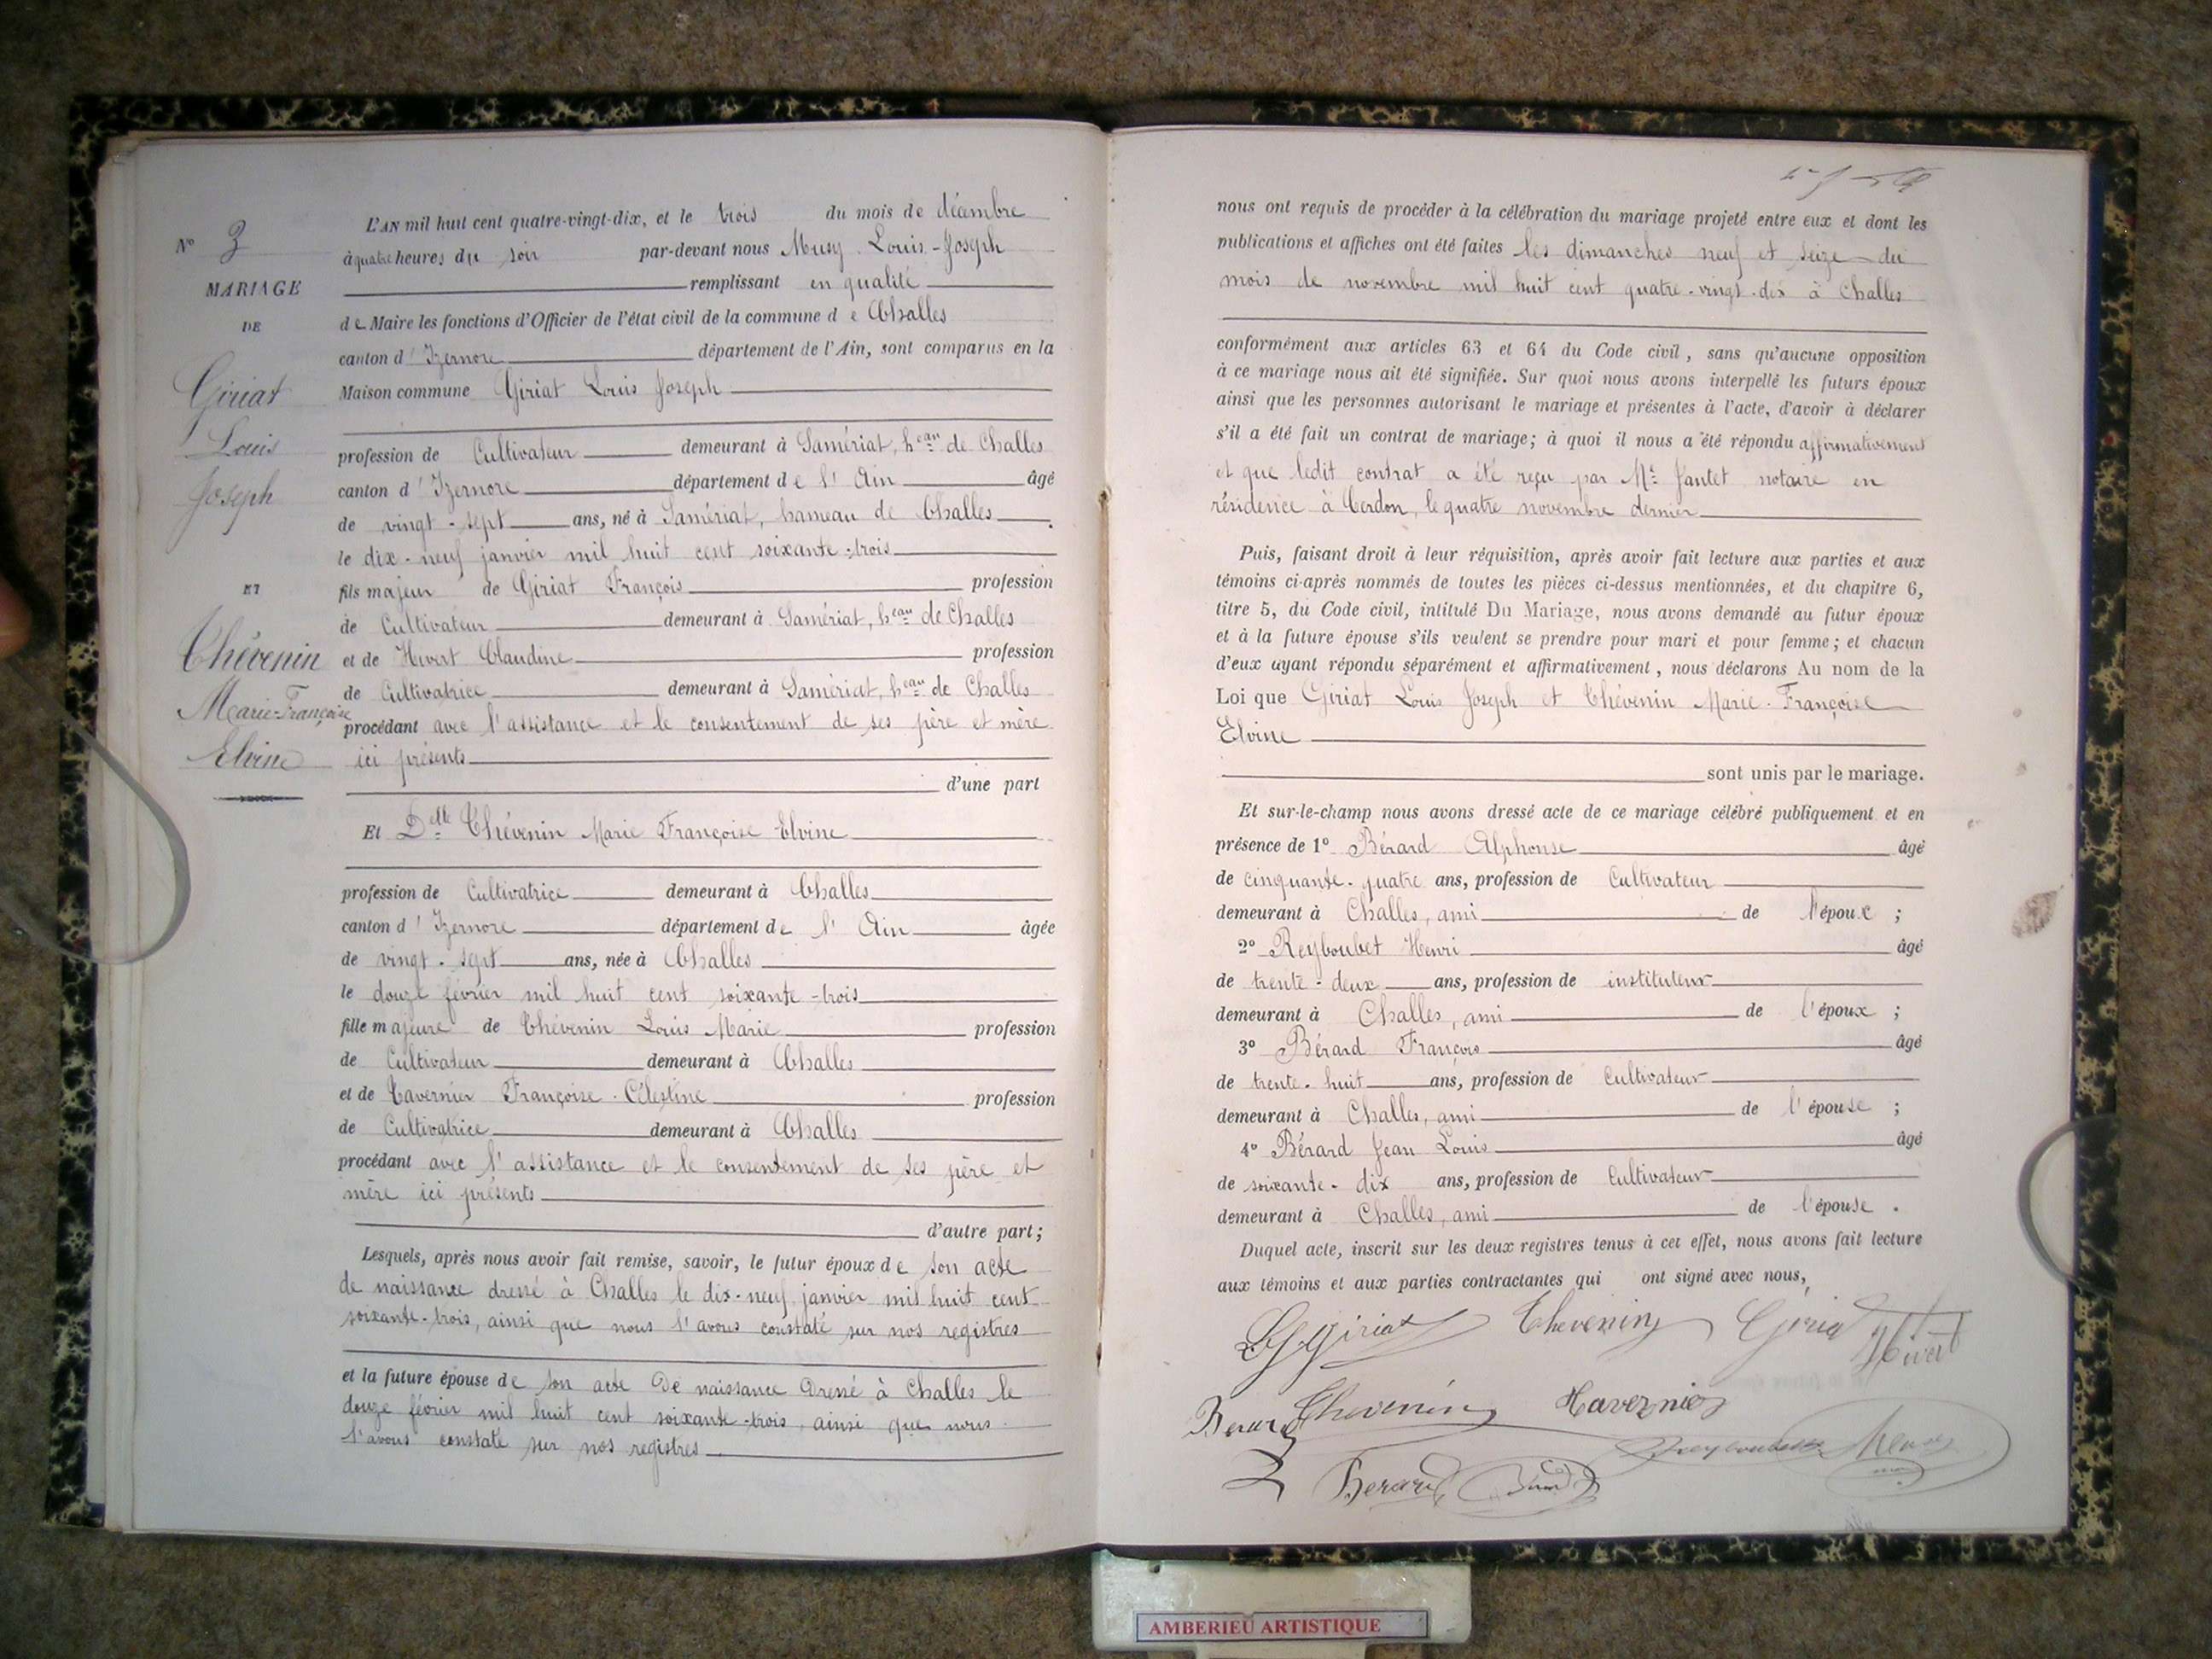 L'AN mil huit cent quatre-vingt-dix, et le trois du mois de décembre
N° 3
à quatre heures du soir par-devant nous Musy Louis-Joseph
MARIAGE
remplissant en qualité
DE
de Maire les fonctions d'Officier de l'état civil de la commune de Challes
canton d'Izernore département de l'Ain, sont comparus en la
Giriat
Louis
Joseph
Maison commune Giriat Louis Joseph
profession de Cultivateur demeurant à Samériat, heau de Challes
canton d'Izernore département de l'Ain âgé
de vingt-sept ans, né à Samériat, hameau de Challes
le dix-neuf janvier mil huit cent soixante-trois
ET
fils majeur de Giriat François profession
de Cultivateur demeurant à Samériat, heau de Challes
Thévenin
Marie-Françoise
Elvine
et de Hivert Claudine profession
de Cultivatrice demeurant à Samériat, heau de Challes
procédant avec l'assistance et le consentement de ses père et mère
ici présents
d'une part
Et Delle Thévenin Marie Françoise Elvine
profession de Cultivatrice demeurant à Challes
canton d'Izernore département de l'Ain âgée
de vingt-sept ans, née à Challes
le douze février mil huit cent soixante-trois
fille majeure de Thévenin Louis Marie profession
de Cultivateur demeurant à Challes
et de Tavernier Françoise-Célestine profession
de Cultivatrice demeurant à Challes
procédant avec l'assistance et le consentement de ses père et
mère ici présents
d'autre part;
Lesquels, après nous avoir fait remise, savoir, le futur époux de son acte
de naissance dressé à Challes le dix-neuf janvier mil huit cent
soixante-trois, ainsi que nous l'avons constaté sur nos registres
et la future épouse de son acte de naissance dressé à Challes le
douze février mil huit cent soixante-trois, ainsi que nous
l'avons constaté sur nos registres
nous ont requis de procéder à la célébration du mariage projeté entre eux et dont les
publications et affiches ont été faites les dimanches neuf et seize du
mois de novembre mil huit cent quatre-vingt-dix à Challes
conformément aux articles 63 et 64 du Code civil, sans qu'aucune opposition
à ce mariage nous ait été signifiée. Sur quoi nous avons interpellé les futurs époux
ainsi que les personnes autorisant le mariage et présentes à l'acte, d'avoir à déclarer
s'il a été fait un contrat de mariage; à quoi il nous a été répondu affirmativement
et que ledit contrat a été reçu par Me Jantet notaire en
résidence à Cerdon, le quatre novembre dernier
Puis, faisant droit à leur réquisition, après avoir fait lecture aux parties et aux
témoins ci-après nommés de toutes les pièces ci-dessus mentionnées, et du chapitre 6,
titre 5, du Code civil, intitulé Du Mariage, nous avons demandé au futur époux
et à la future épouse s'ils veulent se prendre pour mari et pour femme; et chacun
d'eux ayant répondu séparément et affirmativement, nous déclarons Au nom de la
Loi que Giriat Louis Joseph et Thévenin Marie-Françoise
Elvine
sont unis par le mariage.
Et sur-le-champ nous avons dressé acte de ce mariage célébré publiquement et en
présence de 1° Bérard Alphonse âgé
de cinquante-quatre ans, profession de Cultivateur
demeurant à Challes, ami de l'époux ;
2° Reyboubet Henri âgé
de trente-deux ans, profession de instituteur
demeurant à Challes, ami de l'époux ;
3° Bérard François âgé
de trente-huit ans, profession de Cultivateur
demeurant à Challes, ami de l'épouse ;
4° Bérard Jean Louis âgé
de soixante-dix ans, profession de Cultivateur
demeurant à Challes, ami de l'épouse .
Duquel acte, inscrit sur les deux registres tenus à cet effet, nous avons fait lecture
aux témoins et aux parties contractantes qui ont signé avec nous,
Giriat Thevenin Giriat Hivert
Berard Thevenin Tavernier
Berard Reyboubet Musy
AMBERIEU ARTISTIQUE